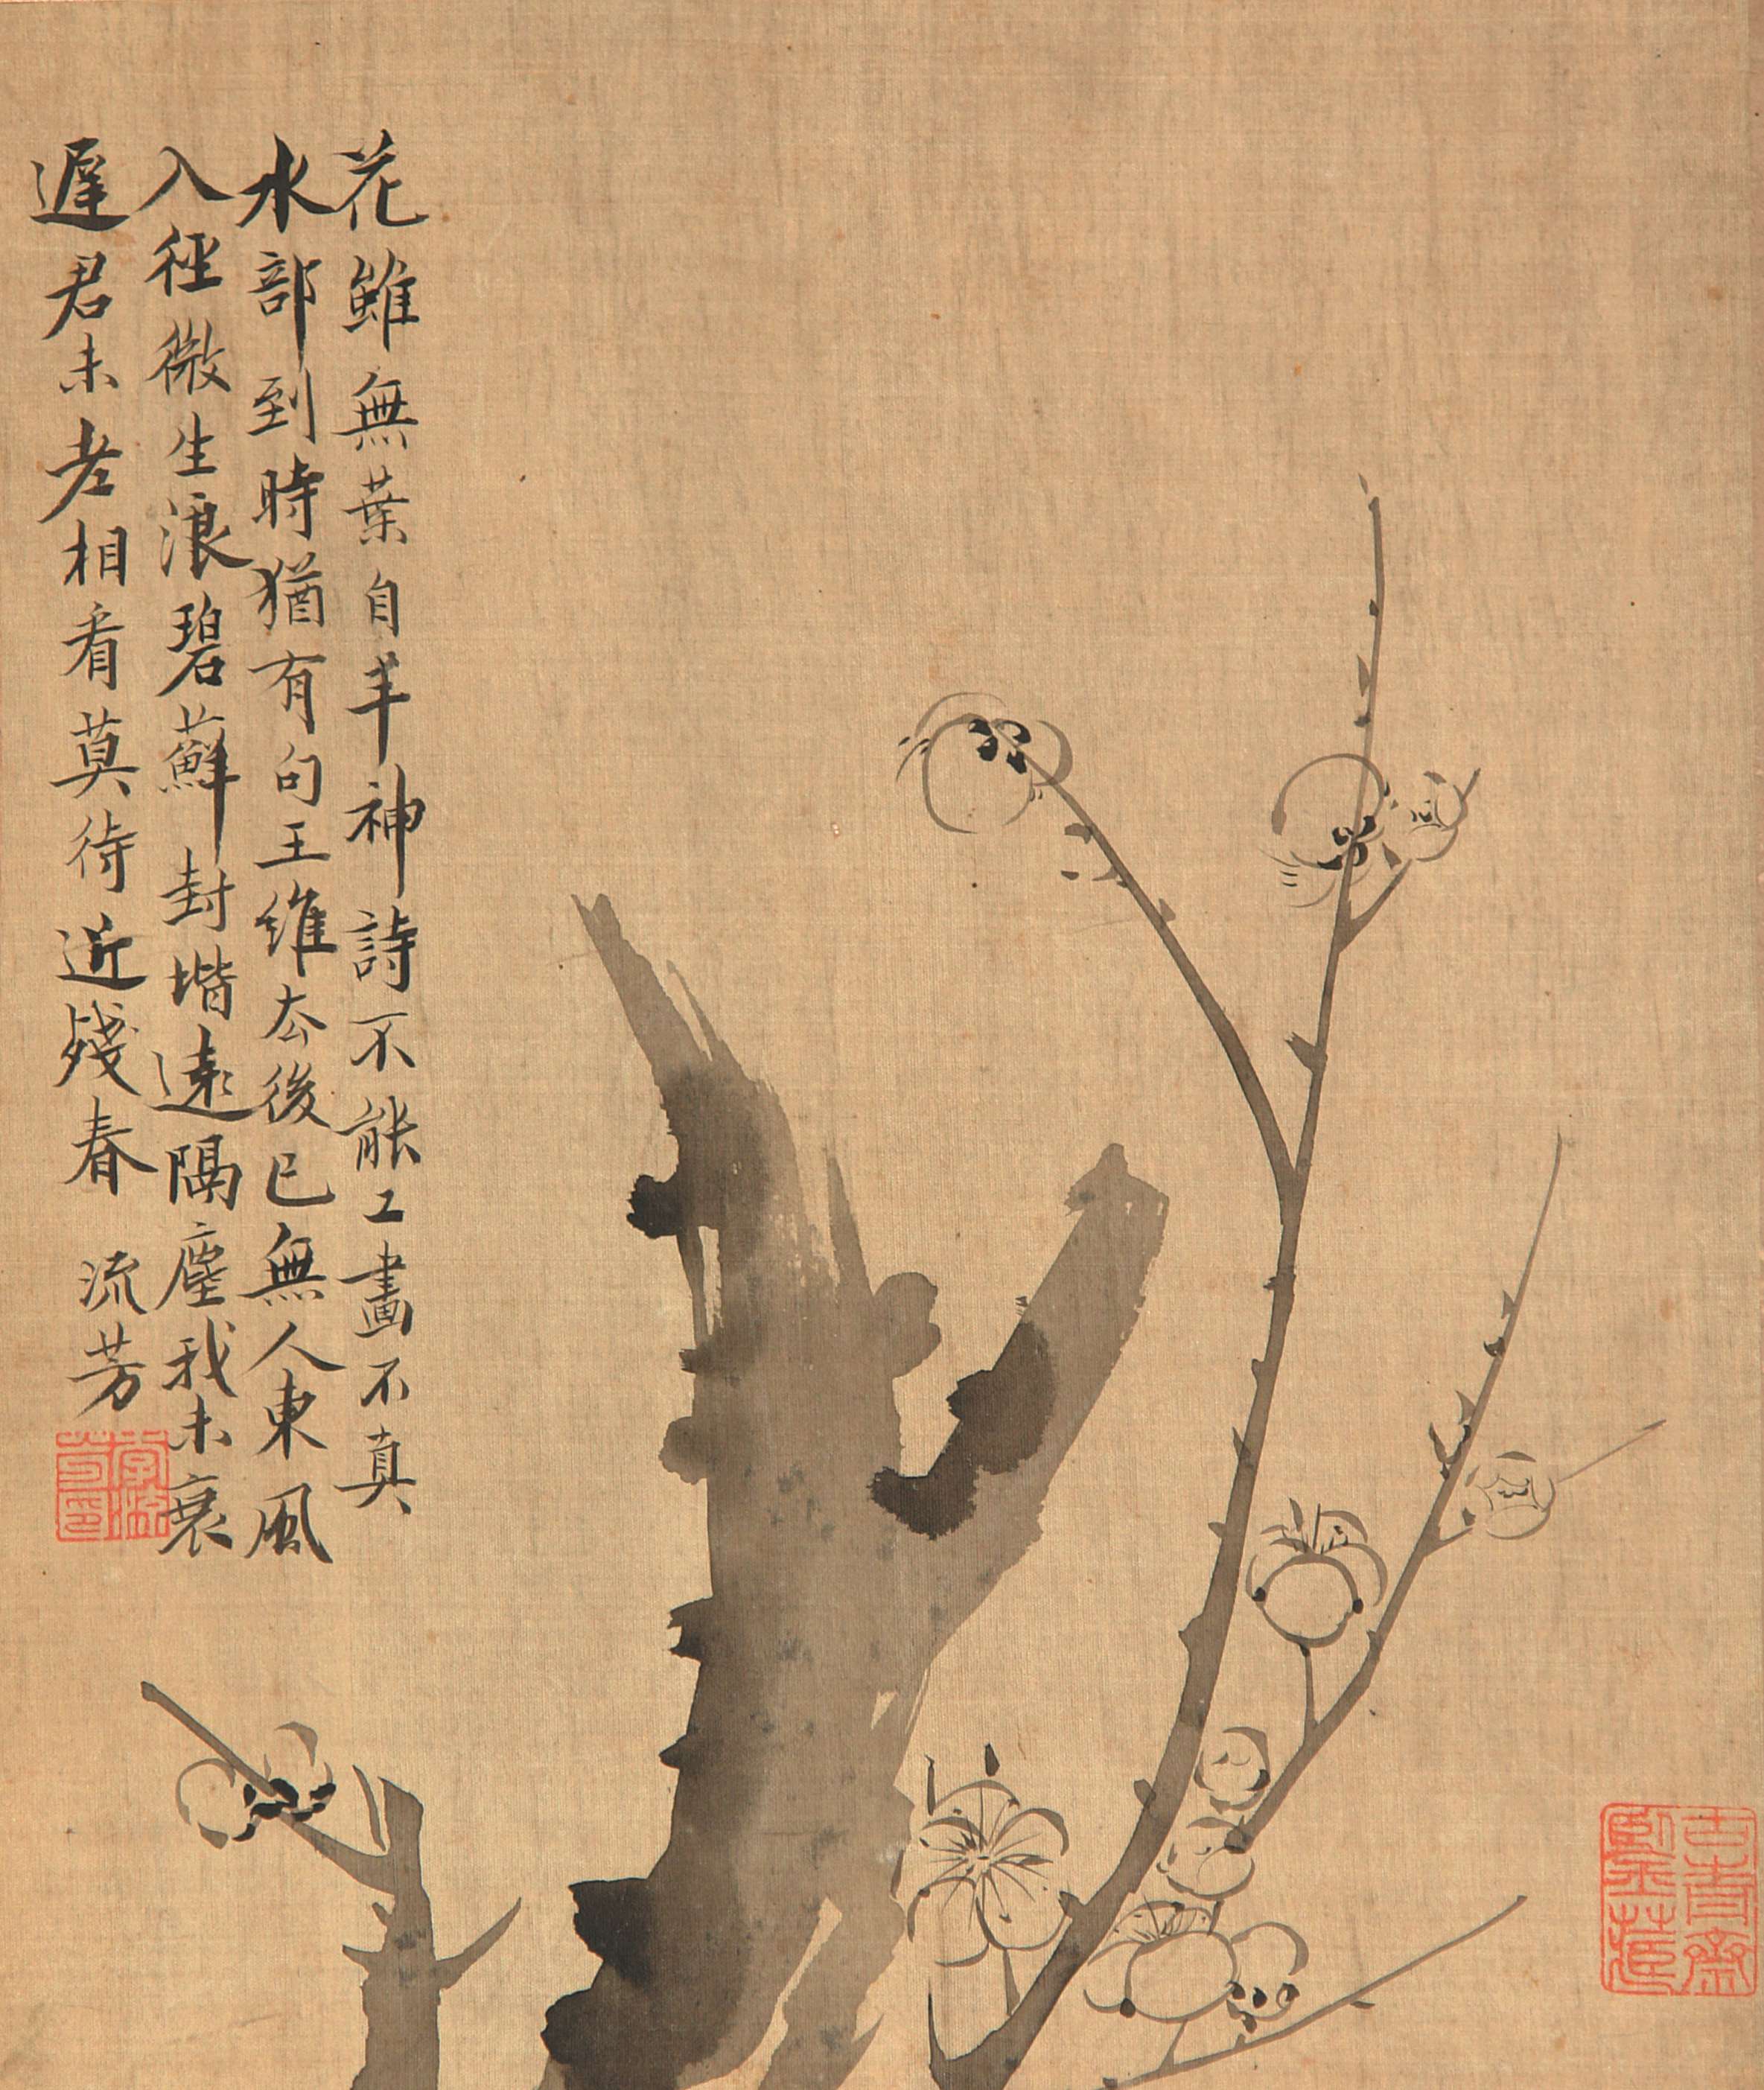 花雖無葉自丰神詩不能工畫不真
水部到時猶有句王維去後已無人東風
入徑微生浪碧蘚封堦遠隔塵我未衰
遲君未老相看莫待近殘春 流芳
李流芳印